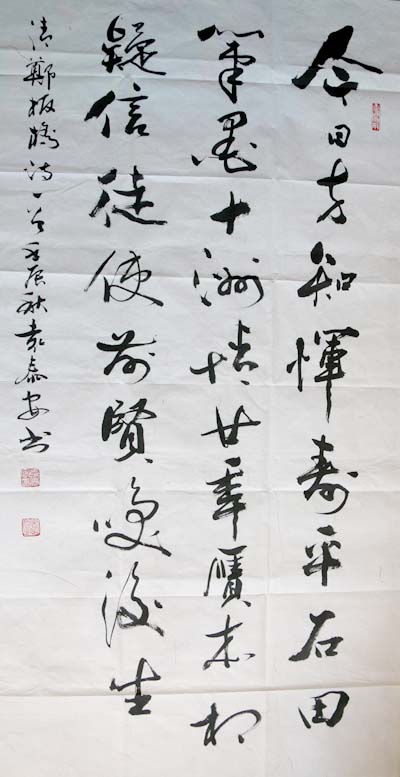 今日方知惲寿平石田
筆墨十洲情廿年贋本相
疑信徒使前賢咲後生
清鄭板橋詩一首壬辰秋袁泰安书